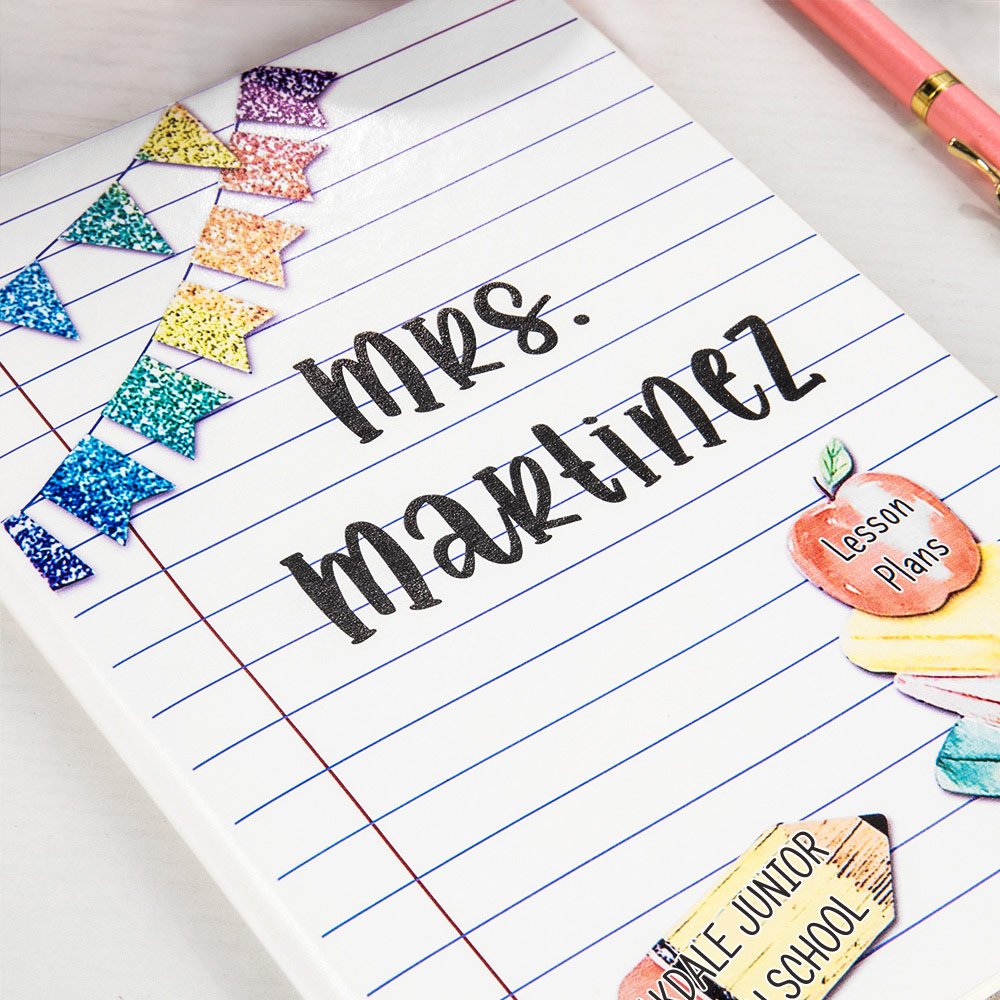 Mrs.
Martinez
Lesson
Plans
JUNIOR
SCHOOL